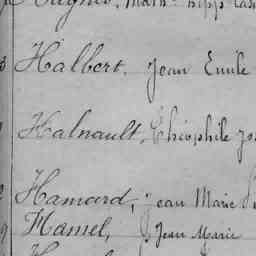 Halbert, Jean Emile
Halnault, Théophile
Hamard, Jean Marie
Hamel, Jean Marie